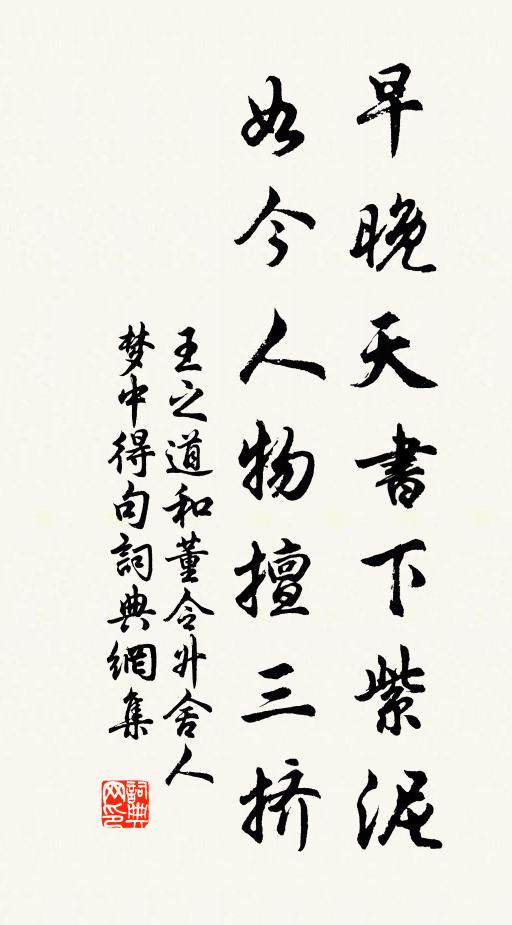 早晚天書下紫泥
如今人物擅三挤
王之道和董令升舍人
梦中得句詞典網集
詞典网印